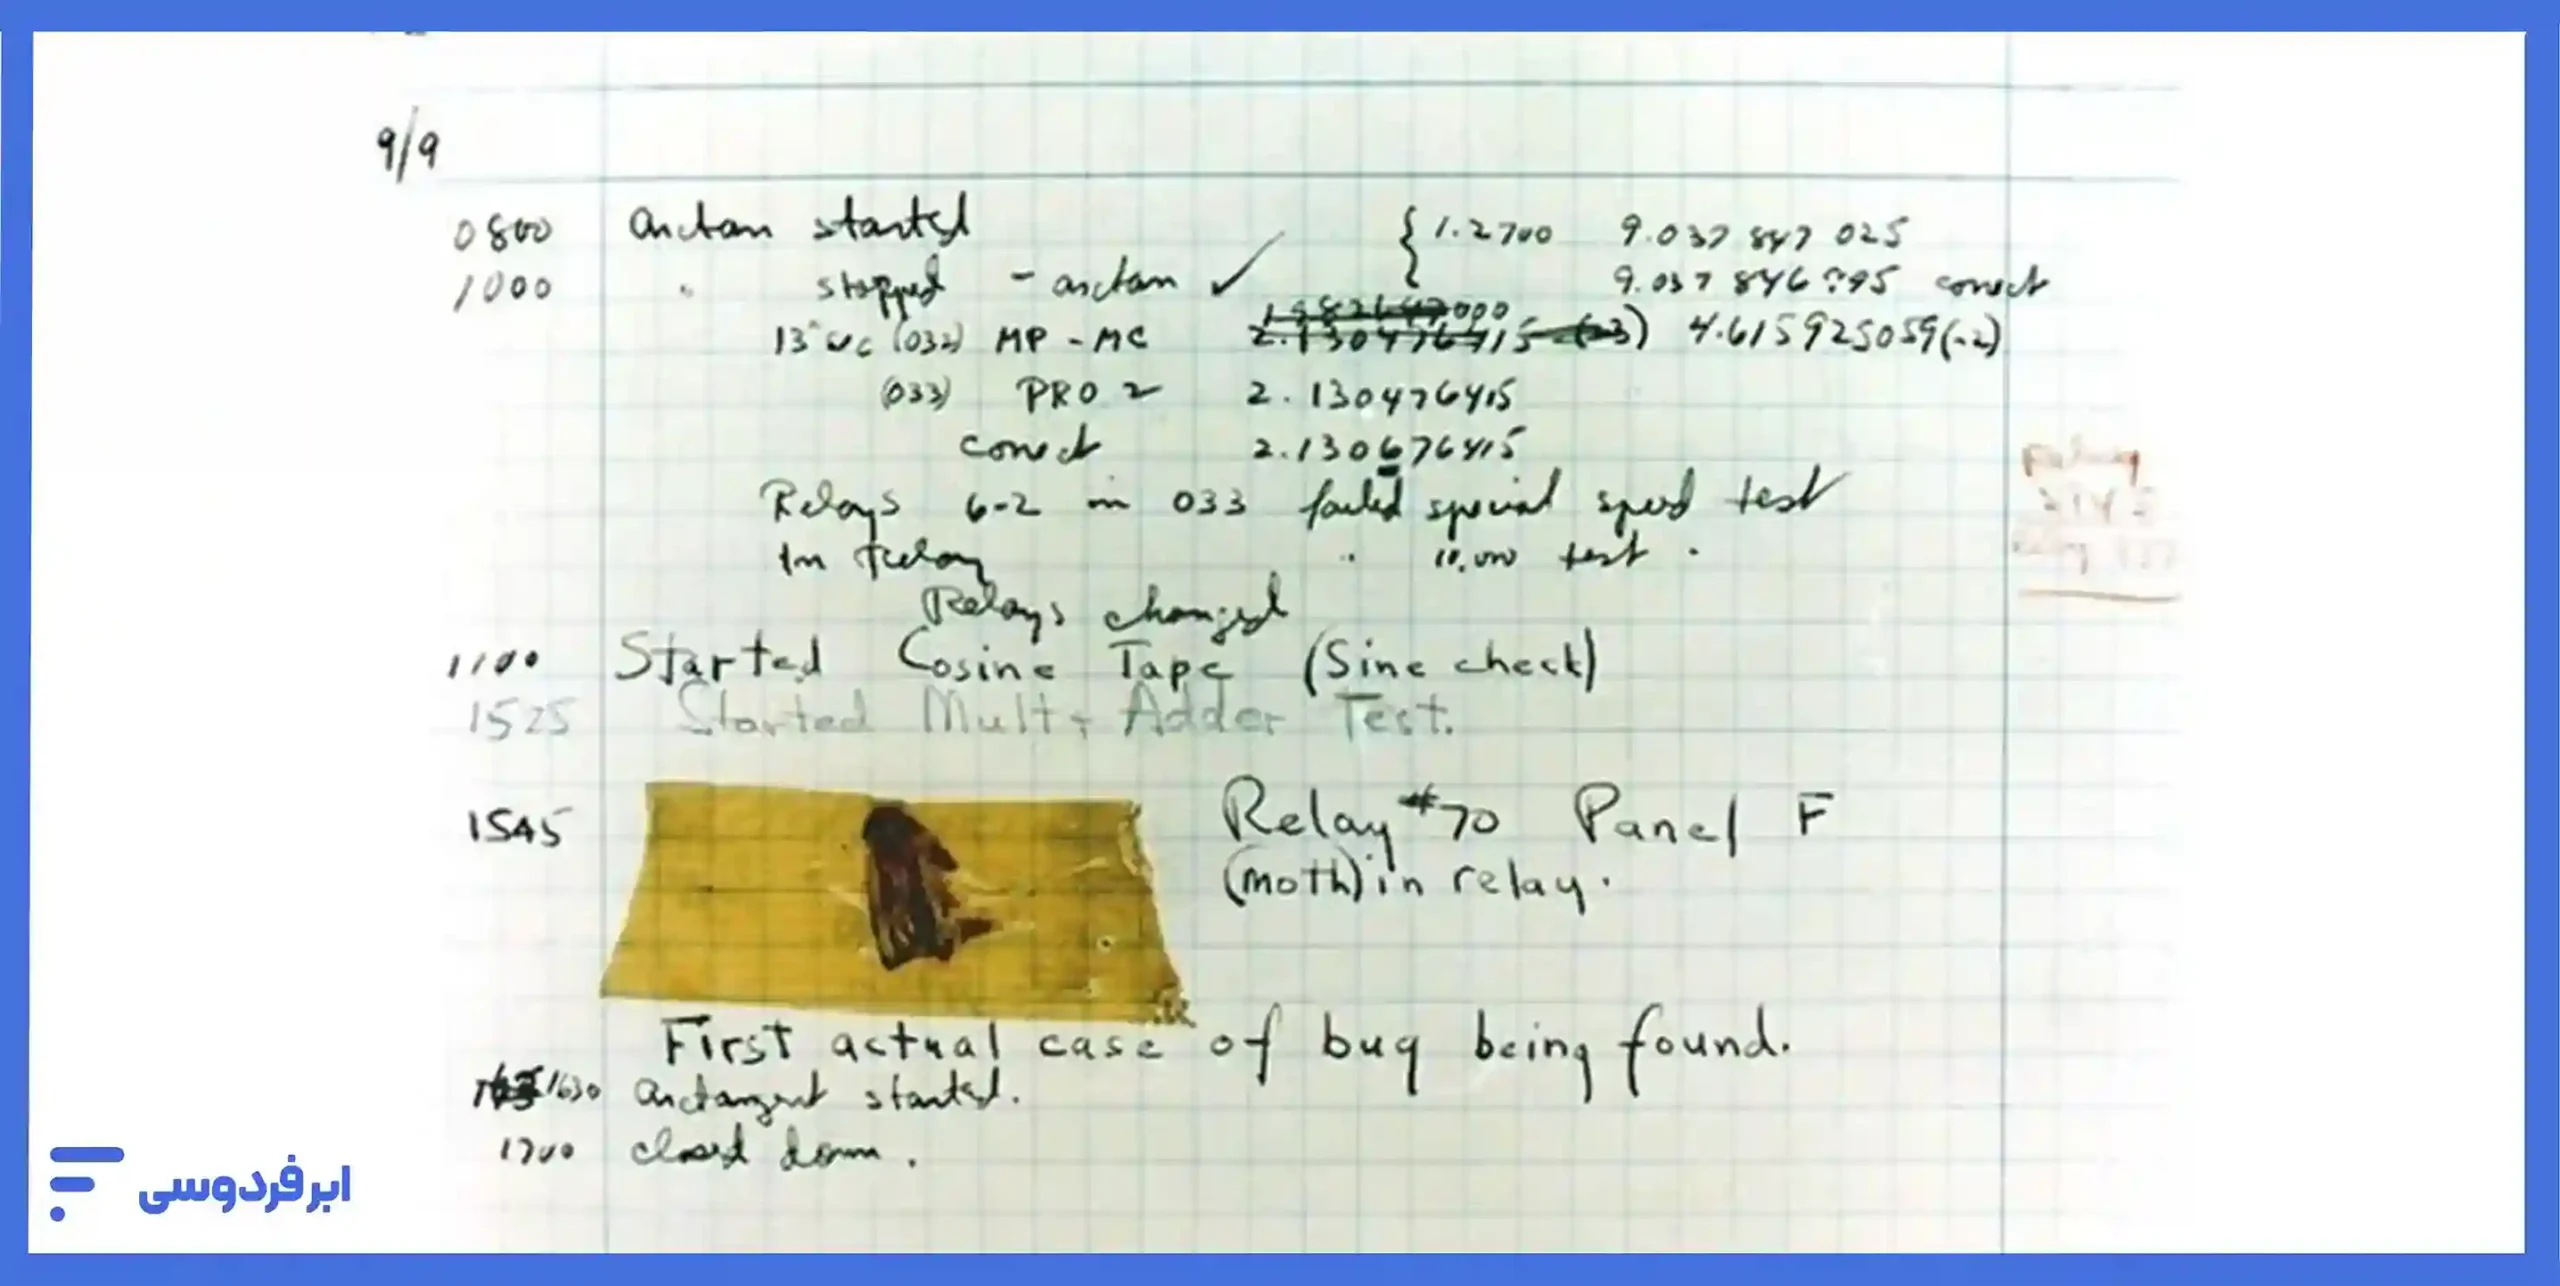 9/9
0800 arctan started { 1.2700 9.037 847 025
1000 " stopped - arctan ✓ 9.037 846 995 correct
000
13" MC (032) MP - MC 2.130476415 (-3) 4.615925059(-2)
(033) PRO 2 2.130476415
correct 2.130676415
Relays 6-2 in 033 failed special speed test
In Relay " 10,000 test .
Relays changed
1100 Started Cosine Tape (Sine check)
1525 Started Mult + Adder Test.
1545 Relay #70 Panel F
(moth) in relay.
First actual case of bug being found.
1630 arctangent started.
1700 closed down.
ابر فردوسی